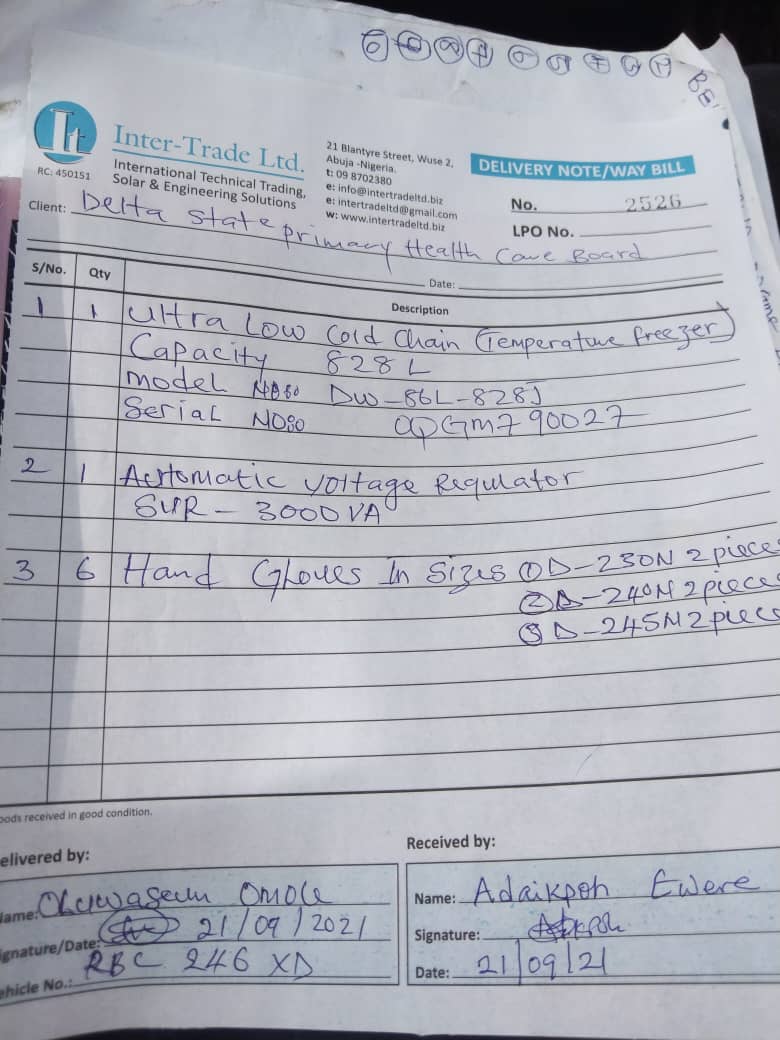 It
RC: 450151
Inter-Trade Ltd.
International Technical Trading,
Solar & Engineering Solutions
21 Blantyre Street, Wuse 2,
Abuja -Nigeria.
t: 09 8702380
e: info@intertradeltd.biz
e: intertradeltd@gmail.com
w: www.intertradeltd.biz
DELIVERY NOTE/WAY BILL
No. 2526
LPO No.
Client: Delta State primary Health Care Board
Date:
S/No. Qty Description
1 1 Ultra Low Cold Chain (Temperature freezer)
Capacity 828 L
Model No: DW-86L-828J
Serial No:
2 1 Automatic Voltage Regulator
SVR - 3000VA
3 6 Hand Gloves In Sizes ① D-230N 2 piece
② D-240N 2 piece
③ D-245N 2 piec
oods received in good condition.
elivered by:
ame: Oluwaseun Omole
ignature/Date: 21/09/2021
ehicle No.: RBC 246 XD
Received by:
Name: Adaikpoh Ewere
Signature:
Date: 21/09/21